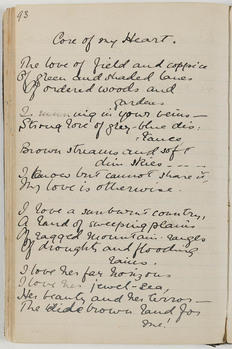 93
Core of my Heart.
The love of field and coppice
Of green and shaded lanes
Of ordered woods and
gardens
Is running in your veins—
Strong love of grey-blue dis:
:tances
Brown streams and soft
dim skies - - - -
I know but cannot share it,
My love is otherwise.
I love a sunburnt country,
A land of sweeping plains
Of ragged mountain-ranges
Of droughts and flooding
rains.
I love her far horizons
I love her jewel-sea,
Her beauty and her terror—
The wide brown land for
me!